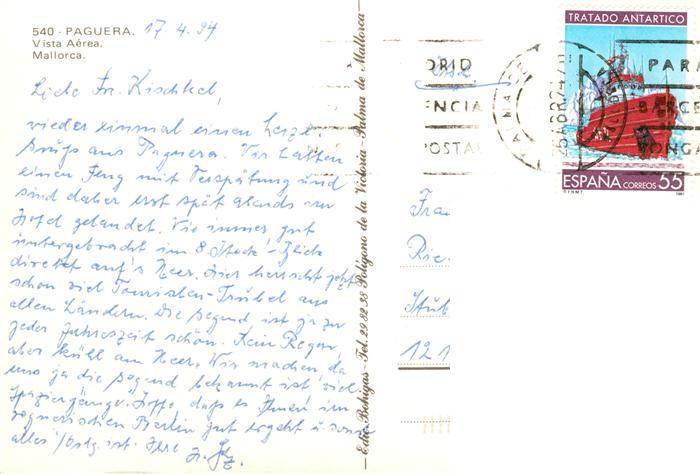 540 - PAGUERA. 17.4.94
Vista Aérea.
Mallorca.
Liebe Fr. Kischkel,
wieder einmal einen herzl.
Gruß aus Paguera. Wir hatten
einen Flug mit Verspätung und
sind daher erst spät abends im
Hotel gelandet. Wie immer gut
untergebracht im 8. Stock - Blick
direkt auf's Meer. Hier herrscht jetzt
schon viel Touristen-Trubel aus
allen Ländern. Die Gegend ist ja zu
jeder Jahreszeit schön. Kein Regen,
aber kühl am Meer. Wir machen, da
uns ja die Gegend bekannt ist, viel
Spaziergänge. Hoffe, daß es Ihnen im
regnerischen Berlin gut ergeht u. sonst
alles i. Ihre Fr.
Edic. Bohigas - Tel. 29 82 38 Polígono de la Victoria - Palma de Mallorca
TRATADO ANTARTICO
ESPAÑA CORREOS 55
F.N.M.T.
DRID
ENCIA
POSTAL
PALMA DE
25 ABR 94
PARA
BARCE
ZONGA
Frau
Rie
Stub
121